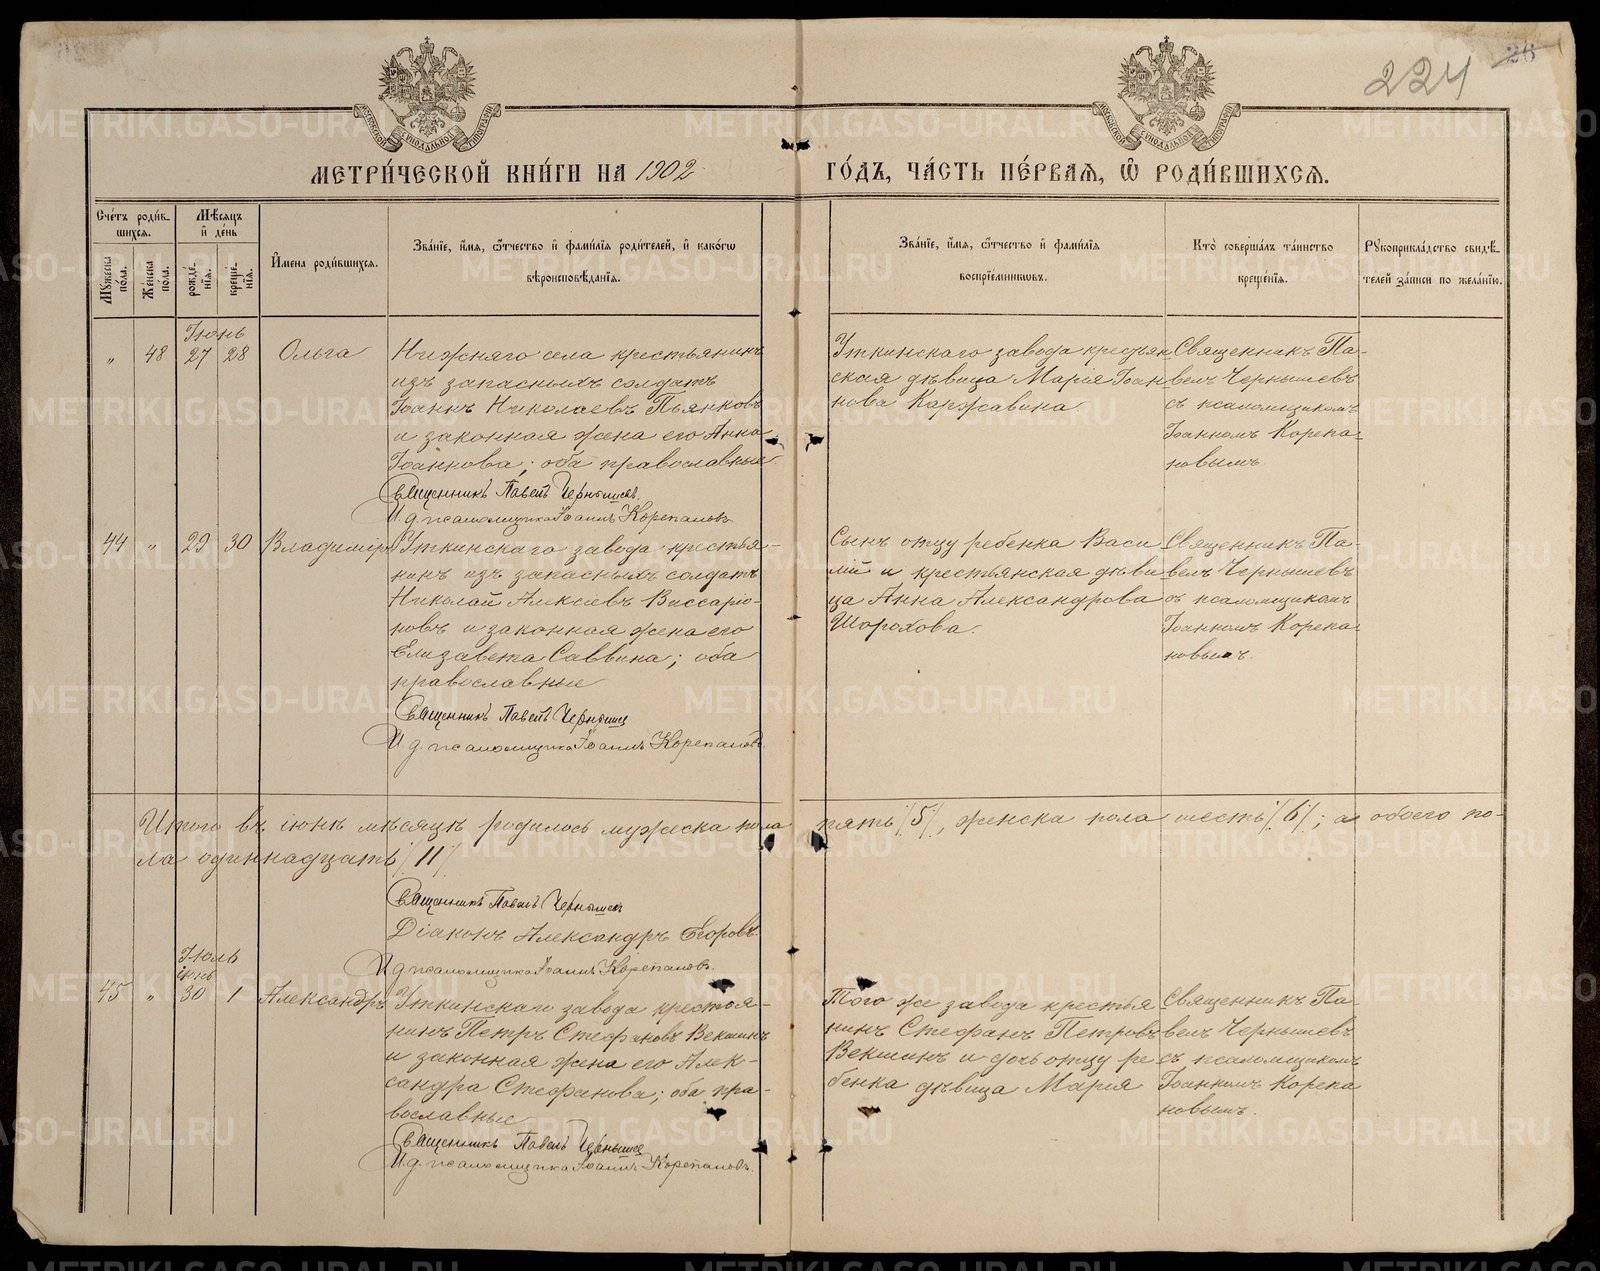 224
28
МЕТРИ́ЧЕСКОЙ КНИ́ГИ НА 1902
ГО́ДЪ, ЧА́СТЬ ПЕ́РВАѦ, Ѽ РОДИ́ВШИХСѦ.
Сче́тъ роди́в-
шихсѧ.
Мѣ́сѧцъ
и҆ де́нь
Мꙋ́жеска
по́ла.
Же́нска
по́ла.
рожде́-
нїѧ.
креще́-
нїѧ.
И҆мена̀ роди́вшихсѧ.
Зва́нїе, и҆́мѧ, ѻ҆́тчество и҆ фами́лїѧ роди́телей, и҆ како́гѡ
вѣроисповѣ́данїѧ.
Зва́нїе, и҆́мѧ, ѻ҆́тчество и҆ фами́лїѧ
воспрїе́мниковъ.
Кто̀ соверша́лъ та́инство
креще́нїѧ.
Рꙋкоприкла́дство свидѣ́-
телей за́писи по жела́нїю.
Іюнь
„ 48 27 28 Ольга
Нижняго села крестьянинъ
изъ запасныхъ солдатъ
Іоаннъ Николаевъ Пьянковъ
и законная жена его Анна
Іоаннова; оба православные.
Священникъ Павелъ Чернышев
И. д. псаломщика Іоаннъ Корепановъ
Уткинскаго завода крестьян-
ская дѣвица Марія Іоан-
нова Каржавина.
Священникъ Па-
велъ Чернышевъ
съ псаломщикомъ
Іоанномъ Корепа-
новымъ
44 „ 29 30 Владиміръ
Уткинскаго завода крестья-
нинъ изъ запасныхъ солдатъ
Николай Алексіевъ Виссаріо-
новъ и законная жена его
Елизавета Саввина; оба
православные
Священникъ Павелъ Чернышев
И. д. псаломщика Іоаннъ Корепановъ.
Сынъ отцу ребенка Васи-
лій и крестьянская дѣви-
ца Анна Александрова
Шорохова.
Священникъ Па-
велъ Чернышевъ
съ псаломщикомъ
Іоанномъ Корепа-
новымъ.
Итого въ іюнѣ мѣсяцѣ родилось мужеска пола пять /5/, женска пола шесть /6/; а обоего по-
ла одиннадцать /11/
Священникъ Павелъ Чернышев
Діаконъ Александръ Егоровъ.
И д псаломщика Іоаннъ Корепановъ.
Іюль
іюнь
45 „ 30 1 Александръ
Уткинскаго завода крестья-
нинъ Петръ Стефановъ Векшинъ
и законная жена его Алек-
сандра Стефанова; оба пра-
вославные
Священникъ Павелъ Чернышев
И. д. псаломщика Іоаннъ Корепановъ.
Того же завода крестья-
нинъ Стефанъ Петровъ
Векшинъ и дочь отцу ре-
бенка дѣвица Марія
Священникъ Па-
велъ Чернышевъ
съ псаломщикомъ
Іоанномъ Корепа
новымъ.
METRIKI.GASO-URAL.RU